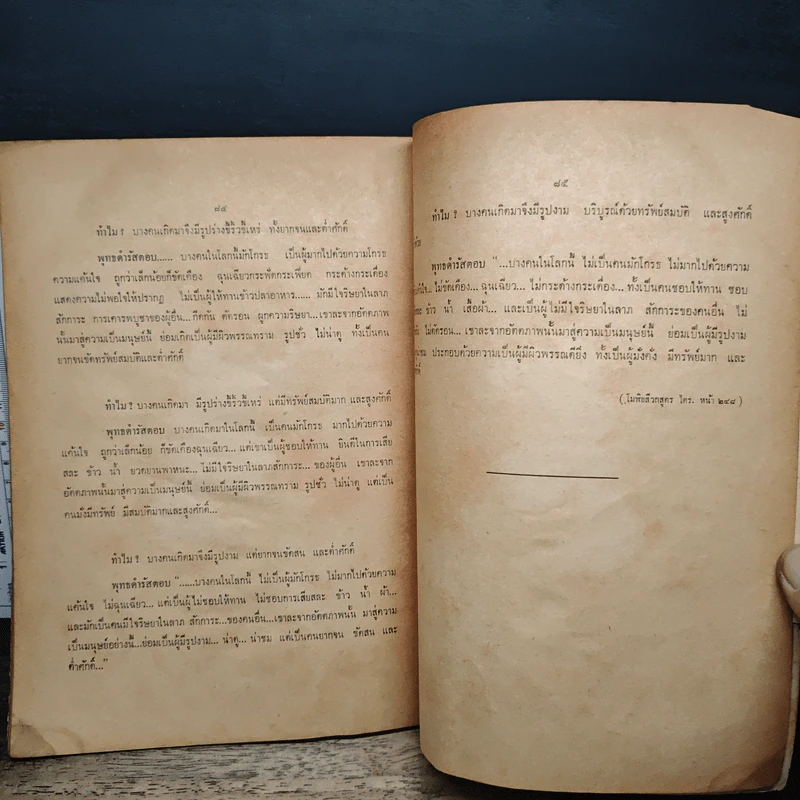 ๘๔
ทำไม ? บางคนเกิดมาจึงมีรูปร่างขี้ริ้วขี้เหร่ ทั้งยากจนและต่ำศักดิ์
พุทธดำรัสตอบ...... บางคนในโลกนี้มักโกรธ เป็นผู้มากไปด้วยความโกรธ
ความแค้นใจ ถูกว่าเล็กน้อยก็ขัดเคือง ฉุนเฉียวกระฟัดกระเฟียด กระด้างกระเดื่อง
แสดงความไม่พอใจให้ปรากฏ ไม่เป็นผู้ให้ทานข้าวปลาอาหาร...... มักมีใจริษยาในลาภ
สักการะ การเคารพบูชาของผู้อื่น...กีดกัน ตัดรอน ผูกความริษยา...เขาละจากอัตตภาพ
นั้นมาสู่ความเป็นมนุษย์นี้ ย่อมเกิดเป็นผู้มีผิวพรรณทราม รูปชั่ว ไม่น่าดู ทั้งเป็นคน
ยากจนขัดทรัพย์สมบัติและต่ำศักดิ์
ทำไม ? บางคนเกิดมา มีรูปร่างขี้ริ้วขี้เหร่ แต่มีทรัพย์สมบัติมาก และสูงศักดิ์
พุทธดำรัสตอบ บางคนในโลกนี้ เป็นคนมักโกรธ มากไปด้วยความ
แค้นใจ ถูกว่าเล็กน้อย ก็ขัดเคืองฉุนเฉียว... แต่เขาเป็นผู้ชอบให้ทาน ยินดีในการเสีย
สละ ข้าว น้ำ ยวดยานพาหนะ... ไม่มีใจริษยาในลาภสักการะ... ของผู้อื่น เขาละจาก
อัตตภาพนั้นมาสู่ความเป็นมนุษย์นี้ ย่อมเป็นผู้มีผิวพรรณทราม รูปชั่ว ไม่น่าดู แต่เป็น
คนมั่งมีทรัพย์ มีสมบัติมากและสูงศักดิ์...
ทำไม ? บางคนเกิดมาจึงมีรูปงาม แต่ยากจนขัดสน และต่ำศักดิ์
พุทธดำรัสตอบ “......บางคนในโลกนี้ ไม่เป็นผู้มักโกรธ ไม่มากไปด้วยความ
แค้นใจ ไม่ฉุนเฉียว... แต่เป็นผู้ไม่ชอบให้ทาน ไม่ชอบการเสียสละ ข้าว น้ำ ผ้า...
และมักเป็นคนมีใจริษยาในลาภ สักการะ...ของคนอื่น...เขาละจากอัตตภาพนั้น มาสู่ความ
เป็นมนุษย์อย่างนี้...ย่อมเป็นผู้มีรูปงาม... น่าดู... น่าชม แต่เป็นคนยากจน ขัดสน และ
ต่ำศักดิ์...”
๘๕
ทำไม ? บางคนเกิดมาจึงมีรูปงาม บริบูรณ์ด้วยทรัพย์สมบัติ และสูงศักดิ์
ด้วย
พุทธดำรัสตอบ “...บางคนในโลกนี้ ไม่เป็นคนมักโกรธ ไม่มากไปด้วยความ
แค้นใจ... ไม่ขัดเคือง... ฉุนเฉียว... ไม่กระด้างกระเดื่อง... ทั้งเป็นคนชอบให้ทาน ชอบ
ข้าว น้ำ เสื้อผ้า... และเป็นผู้ไม่มีใจริษยาในลาภ สักการะของคนอื่น ไม่
ไม่ตัดรอน...เขาละจากอัตตภาพนั้นมาสู่ความเป็นมนุษย์นี้ ย่อมเป็นผู้มีรูปงาม
ประกอบด้วยความเป็นผู้มีผิวพรรณดียิ่ง ทั้งเป็นผู้มั่งคั่ง มีทรัพย์มาก และ
(โมฬิยสีวกสูตร ไตร. หน้า ๒๔๘)